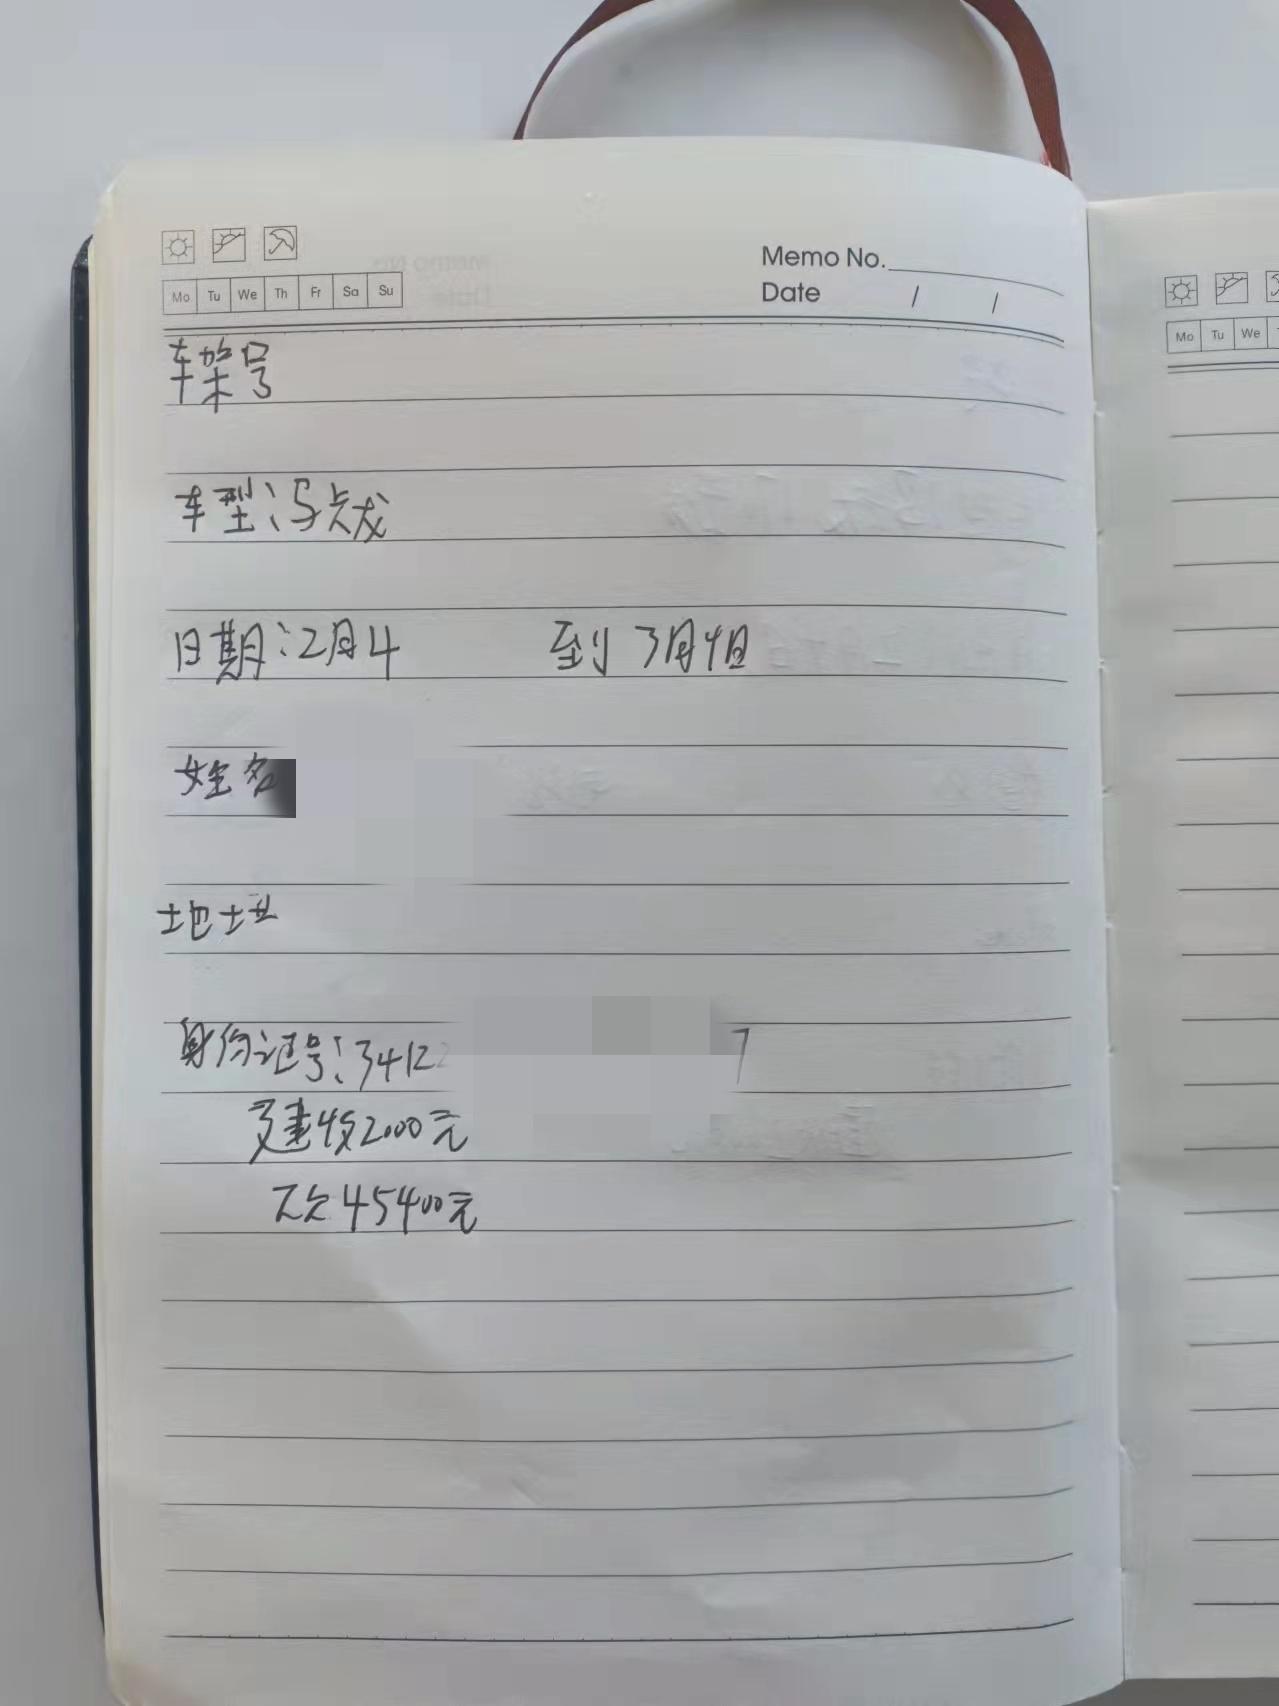 Memo No.
Date / /
Mo Tu We Th Fr Sa Su
Mo Tu We
车架号
车型:冯
日期:2月4 到3月4日
姓名
地址
身份证号:3412 7
建收2000元
欠45400元